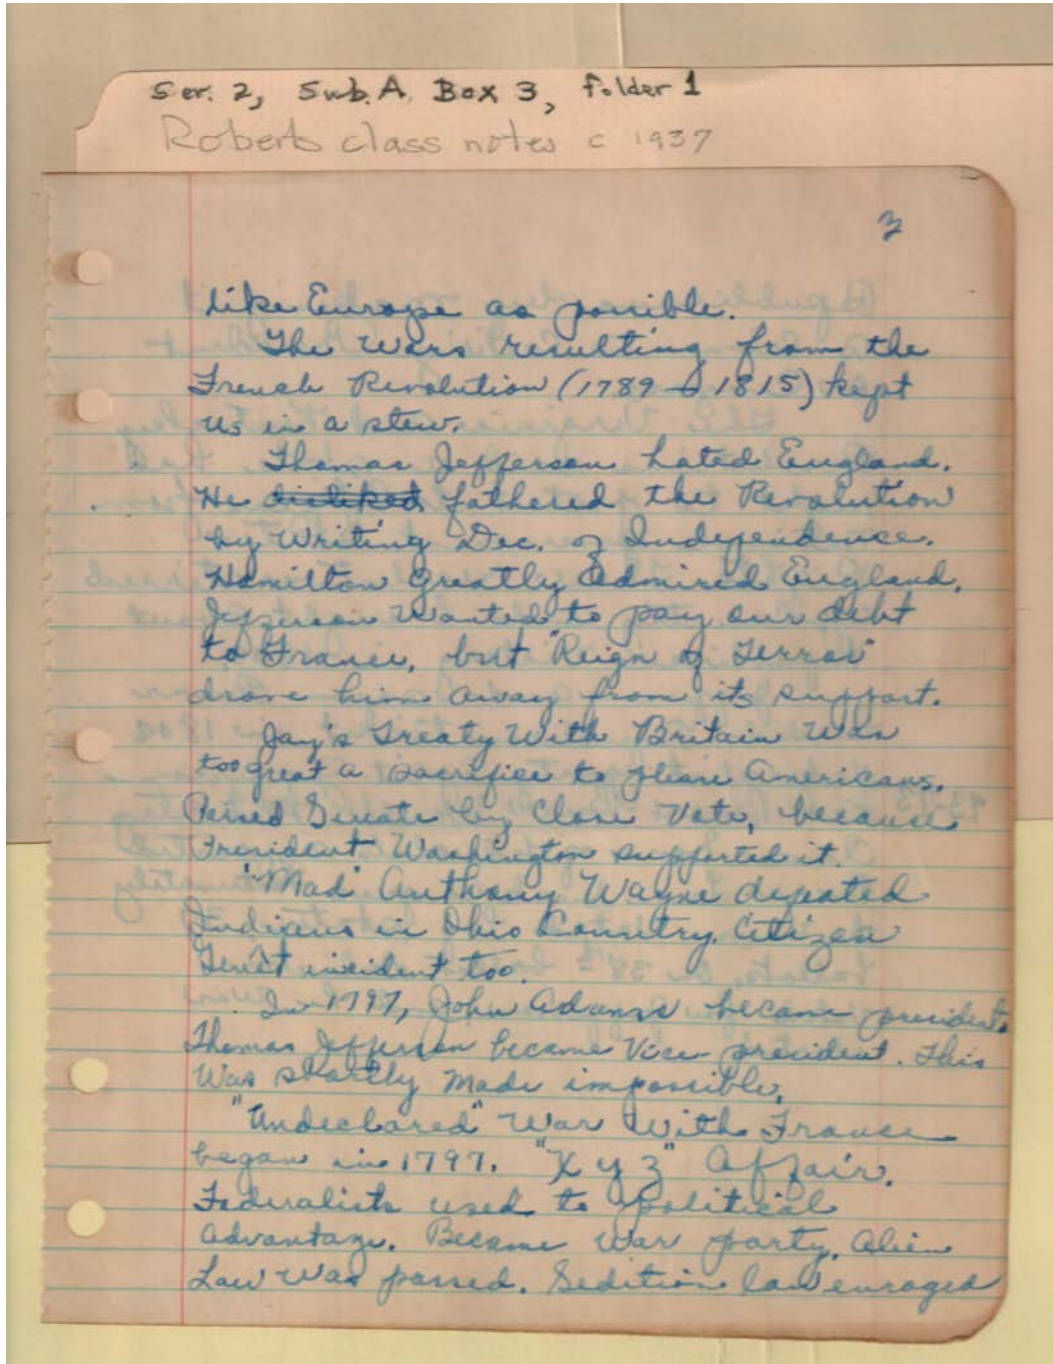 Ser. 2, Sub. A, Box 3, folder 1
Roberts class notes c 1937
3
like Europe as possible.
The Wars resulting from the
French Revolution (1789 to 1815) kept
us in a stew.
Thomas Jefferson hated England.
He disliked fathered the Revolution
by Writing Dec. of Independence.
Hamilton greatly admired England.
Jefferson Wanted to pay our debt
to France, but "Reign of Terror"
drove him away from its support.
Jay's Treaty With Britain was
too great a sacrifice to please Americans.
Passed Senate by Close Vote, because
President Washington supported it.
"Mad" Anthony Wayne defeated
Indians in Ohio Country. Citizen
Genet incident too.
In 1797, John Adams became president.
Thomas Jefferson became Vice-president. This
Was shortly made impossible.
"Undeclared" War With France
began in 1797. "X y z" Affair.
Federalists used to political
Advantage. Became War party. Alien
Law Was passed. Sedition law enraged